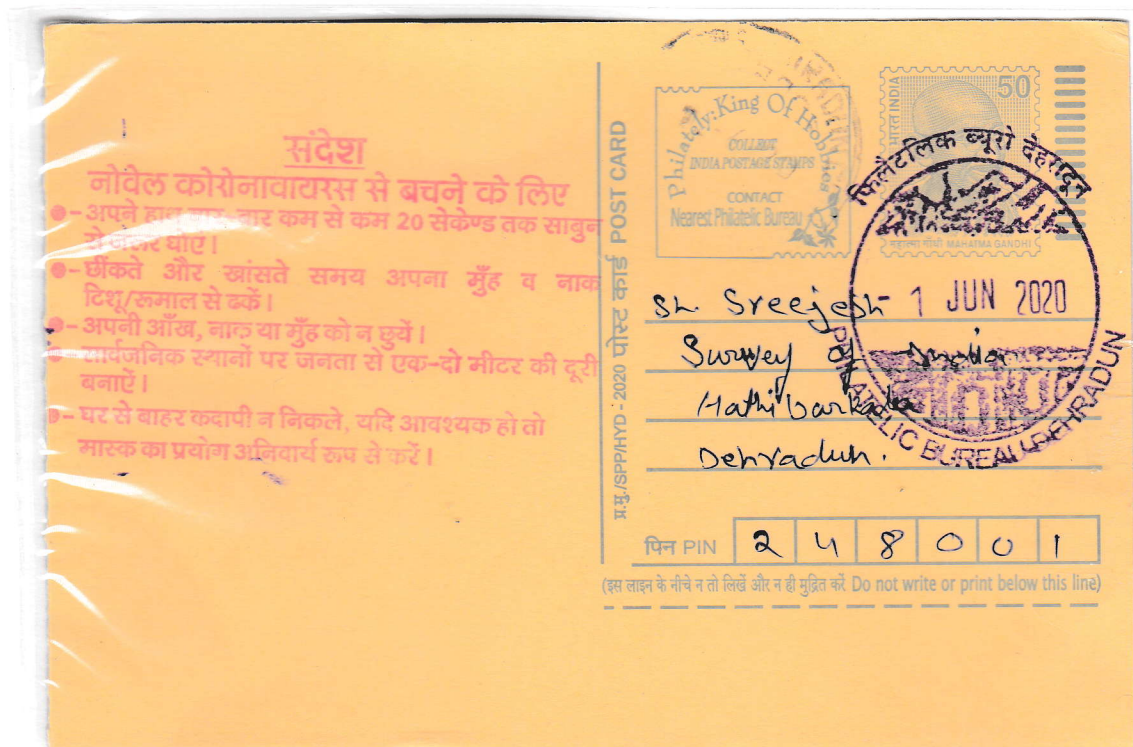 संदेश
नोवेल कोरोनावायरस से बचने के लिए
- अपने हाथ बार-बार कम से कम 20 सेकेण्ड तक साबुन
से धोएं।
- छींकते और खांसते समय अपना मुँह व नाक
टिशू/रूमाल से ढकें।
- अपनी आँख, नाक या मुँह को न छुयें।
- सार्वजनिक स्थानों पर जनता से एक-दो मीटर की दूरी
बनाऐं।
- घर से बाहर कदापी न निकले, यदि आवश्यक हो तो
मास्क का प्रयोग अनिवार्य रूप से करें।
प्र.मु./SPP/HYD - 2020 पोस्ट कार्ड POST CARD
Philately: King Of Hobbies
COLLECT
INDIA POSTAGE STAMPS
CONTACT
Nearest Philatelic Bureau
भारत INDIA
50
महात्मा गांधी MAHATMA GANDHI
फिलैटलिक ब्यूरो देहरादून
- 1 JUN 2020
PHILATELIC BUREAU DEHRADUN
Sh. Sreejesh
Survey India
Hathibarkala
Dehradun.
पिन PIN 248001
(इस लाइन के नीचे न तो लिखें और न ही मुद्रित करें Do not write or print below this line)